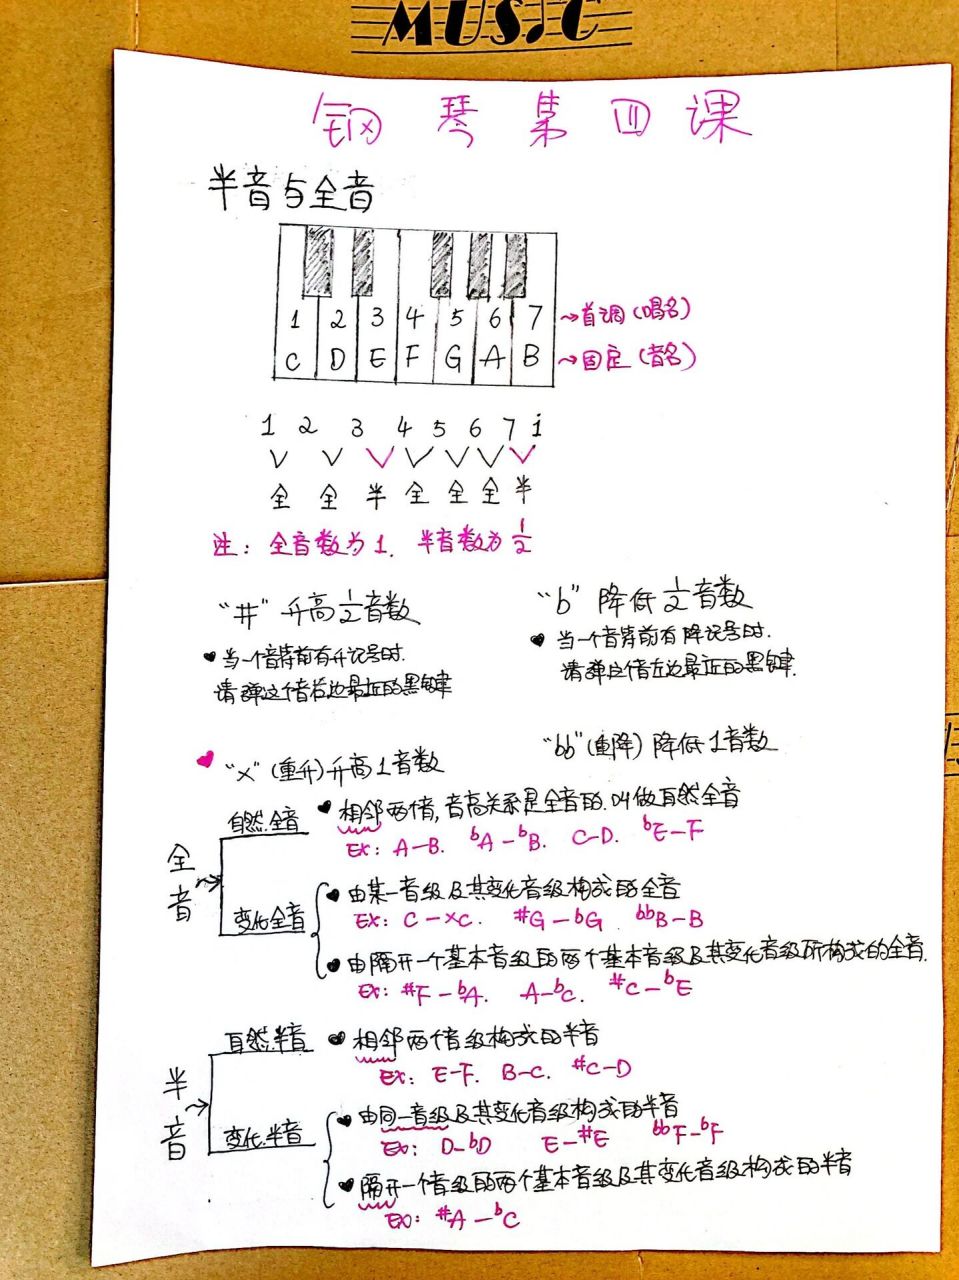 MUSIC
钢琴第四课
半音与全音
1 2 3 4 5 6 7 →首调(唱名)
C D E F G A B →固定(音名)
1 2 3 4 5 6 7 i
全 全 半 全 全 全 半
注: 全音数为1. 半音数为1/2
"#" 升高1/2音数
• 当一个音符前有升记号时.
请弹这个音右边最近的黑键
"b" 降低1/2音数
• 当一个音符前有降记号时.
请弹这个音左边最近的黑键.
♥ "×"(重升)升高1音数
"bb"(重降)降低1音数
全音→
自然全音
♥ 相邻两音,音高关系是全音的.叫做自然全音
Ex: A-B. bA-bB. C-D. bE-F
变化全音
♥ 由某一音级及其变化音级构成的全音
Ex: C-×C. #G-bG bbB-B
♥ 由隔开一个基本音级的两个基本音级及其变化音级所构成的全音.
Ex: #F-bA. A-bC. #C-bE
半音→
自然半音
♥ 相邻两个音级构成的半音
Ex: E-F. B-C. #C-D
变化半音
♥ 由同一音级及其变化音级构成的半音
Ex: D-bD E-#E bbF-bF
♥ 隔开一个音级的两个基本音级及其变化音级构成的半音
Ex: #A-bC